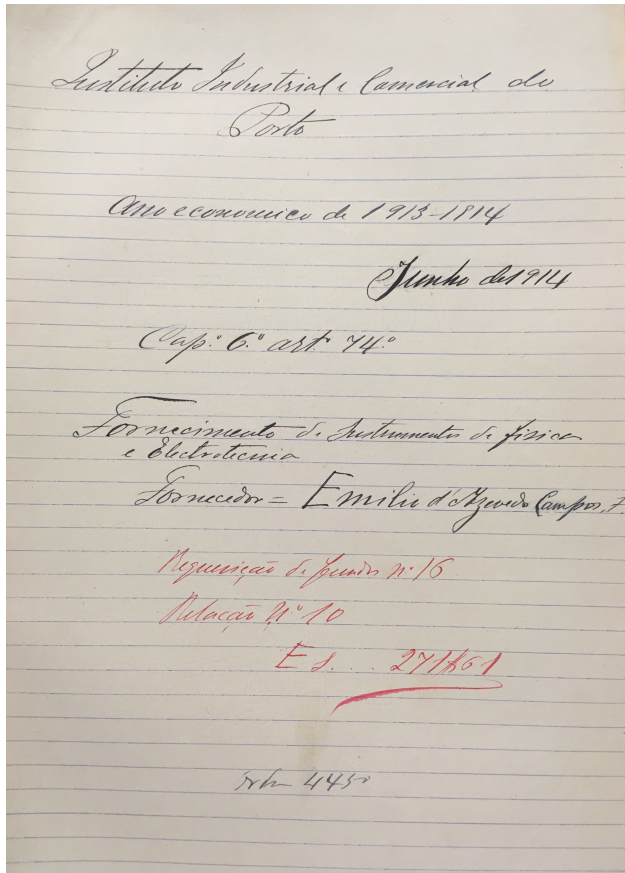 Instituto Industrial e Comercial do
Porto
Ano economico de 1913-1914
Junho de 1914
Cap.º 6.º art.º 74.º
Fornecimento de Instrumentos de fisica
e Electrotecnia
Fornecedor = Emilio d'Azevedo Campos,
Requisição de fundos nº 16
Relação N.º 10
E s... 271$61
4450